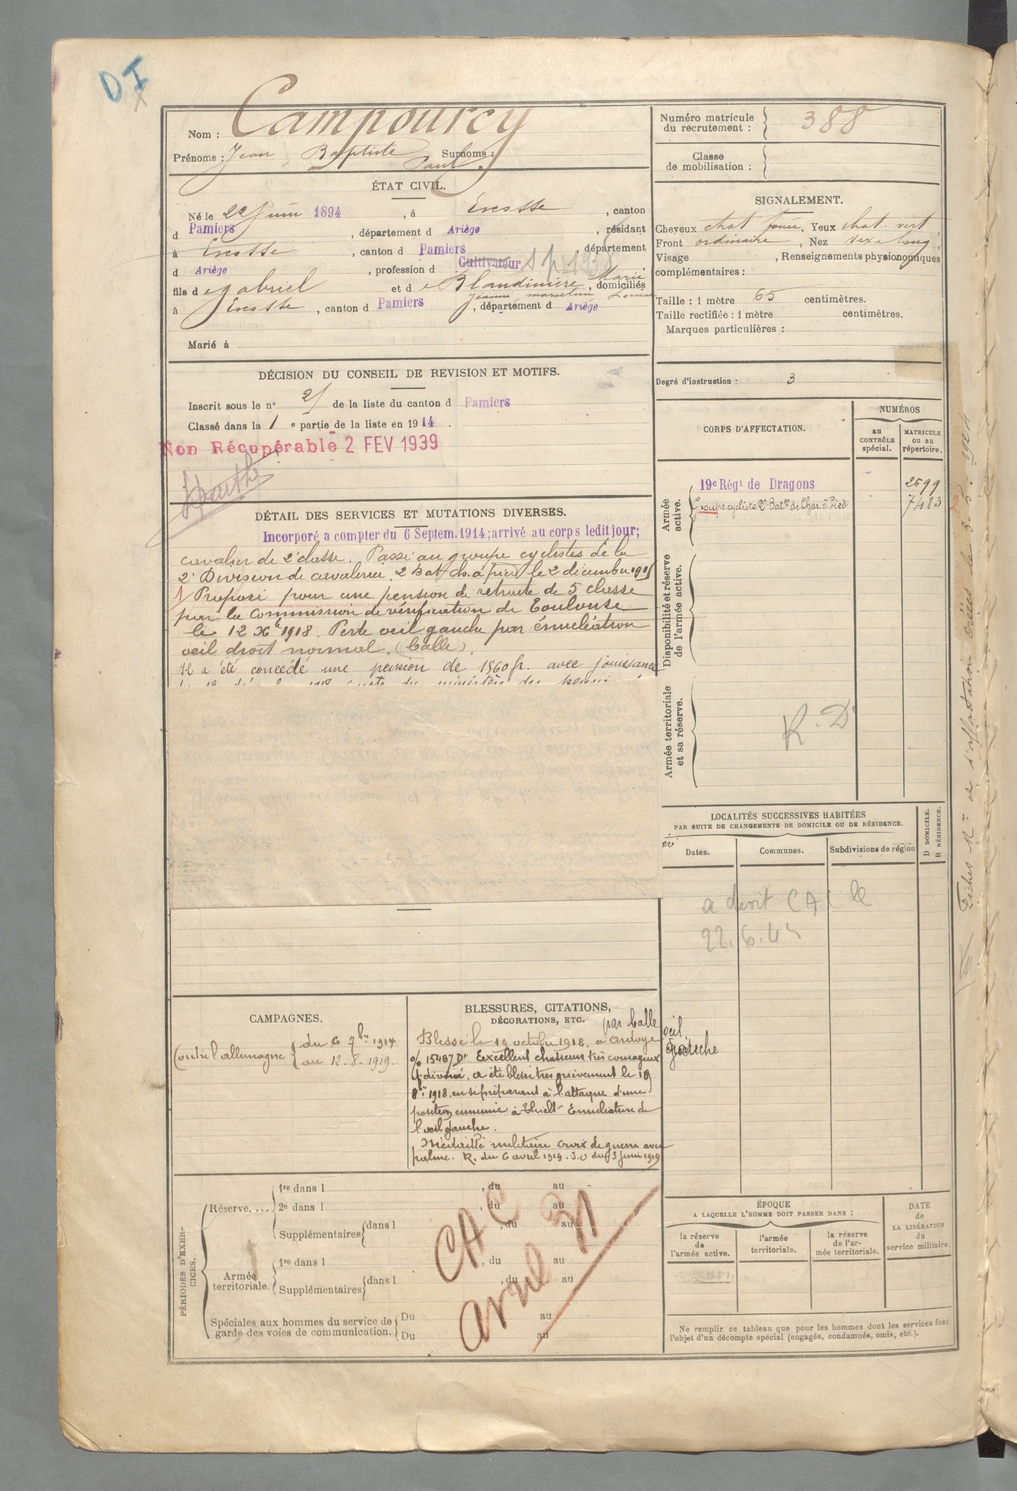 DI
Nom : Campourcy
Prénoms : Jean, Baptiste Paul Surnoms :
ÉTAT CIVIL.
Né le 22 juin 1894, à Escosse, canton
d Pamiers, département d Ariège, résidant
à Escosse, canton d Pamiers, département
d Ariège, profession d Cultivateur
fils de Gabriel et de Blandinière Marie, domiciliés
à Escosse, canton d Pamiers, département d Ariège
Marié à
DÉCISION DU CONSEIL DE REVISION ET MOTIFS.
Inscrit sous le n° 21 de la liste du canton d Pamiers
Classé dans la 1 e partie de la liste en 1914.
Non Récupérable 2 FEV 1939
DÉTAIL DES SERVICES ET MUTATIONS DIVERSES.
Incorporé a compter du 6 Septem. 1914; arrivé au corps ledit jour;
cavalier de 2e classe. Passé au groupe cyclistes de la
2e Division de cavalerie, 2 Bat. ch. à pied le 2 décembre
1) Proposé pour une pension de retraite de 5 classe
par la Commission de vérification de Toulouse
le 12 Xbre 1918. Perte œil gauche par énucléation
œil droit normal. (balle).
Il a été concédé une pension de 1860 fr. avec jouissance
CAMPAGNES.
Contre l'allemagne { du 6 7bre 1914
au 12-8-1919.
BLESSURES, CITATIONS,
DÉCORATIONS, ETC.
par balle œil gauche
Blessé le 19 octobre 1918, à Ardoye
o/ 15487 D" Excellent chasseur très courageux
et dévoué, a été blessé très grièvement le 19
8bre 1918 en se préparant à l'attaque d'une
position ennemie à Thielt. Enucléation de
l'œil gauche.
Médaille militaire croix de guerre avec
palme. R. du 6 avril 1919. J.O du 3 juin 1919
PÉRIODES D'EXERCICES.
Réserve.... 1re dans l , du au
2e dans l , du au
Supplémentaires dans l , du au
Armée territoriale. 1re dans l , du au
Supplémentaires dans l , du au
Spéciales aux hommes du service de garde des voies de communication. Du au
Du au
CAC
avril 31
Numéro matricule du recrutement : 388
Classe de mobilisation :
SIGNALEMENT.
Cheveux chat foncé, Yeux chat. vert
Front ordinaire, Nez
Visage , Renseignements physionomiques
complémentaires :
Taille : 1 mètre 65 centimètres.
Taille rectifiée : 1 mètre centimètres.
Marques particulières :
Degré d'instruction : 3
CORPS D'AFFECTATION.
NUMÉROS
au CONTRÔLE spécial.
MATRICULE ou au répertoire.
Armée active.
19e Régt de Dragons 2599
Groupe cycliste 2e Baton de Chas. à Pied 7483
Disponibilité et réserve de l'armée active.
Armée territoriale et sa réserve.
R. D
LOCALITÉS SUCCESSIVES HABITÉES
PAR SUITE DE CHANGEMENTS DE DOMICILE OU DE RÉSIDENCE.
Dates. Communes. Subdivisions de région
D DOMICILE. R RÉSIDENCE.
a droit CAC le
22.6.44
ÉPOQUE
A LAQUELLE L'HOMME DOIT PASSER DANS :
la réserve de l'armée active.
l'armée territoriale.
la réserve de l'armée territoriale.
DATE de LA LIBÉRATION du service militaire.
Ne remplir ce tableau que pour les hommes dont les services font
l'objet d'un décompte spécial (engagés, condamnés, omis, etc.).